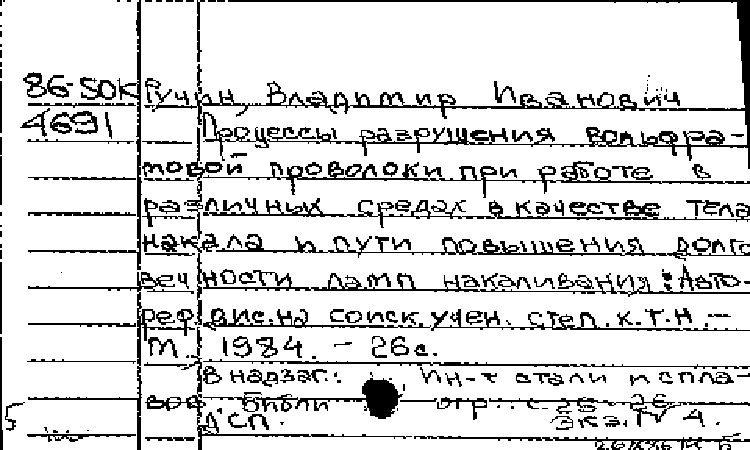 86-SOK Гучин, Владимир Иванович
4691 Процессы разрушения вольфра-
мовой проволоки при работе в
различных средах в качестве тела
накала и пути повышения долго
вечности ламп накаливания: Авто-
реф. дис. на соиск. учен. степ. к.т.н. -
М. 1984. - 26с.
В надзаг.: Ин-т стали и спла-
вов библи огр.: с. 25-26
ДСП. Экз. N 4.